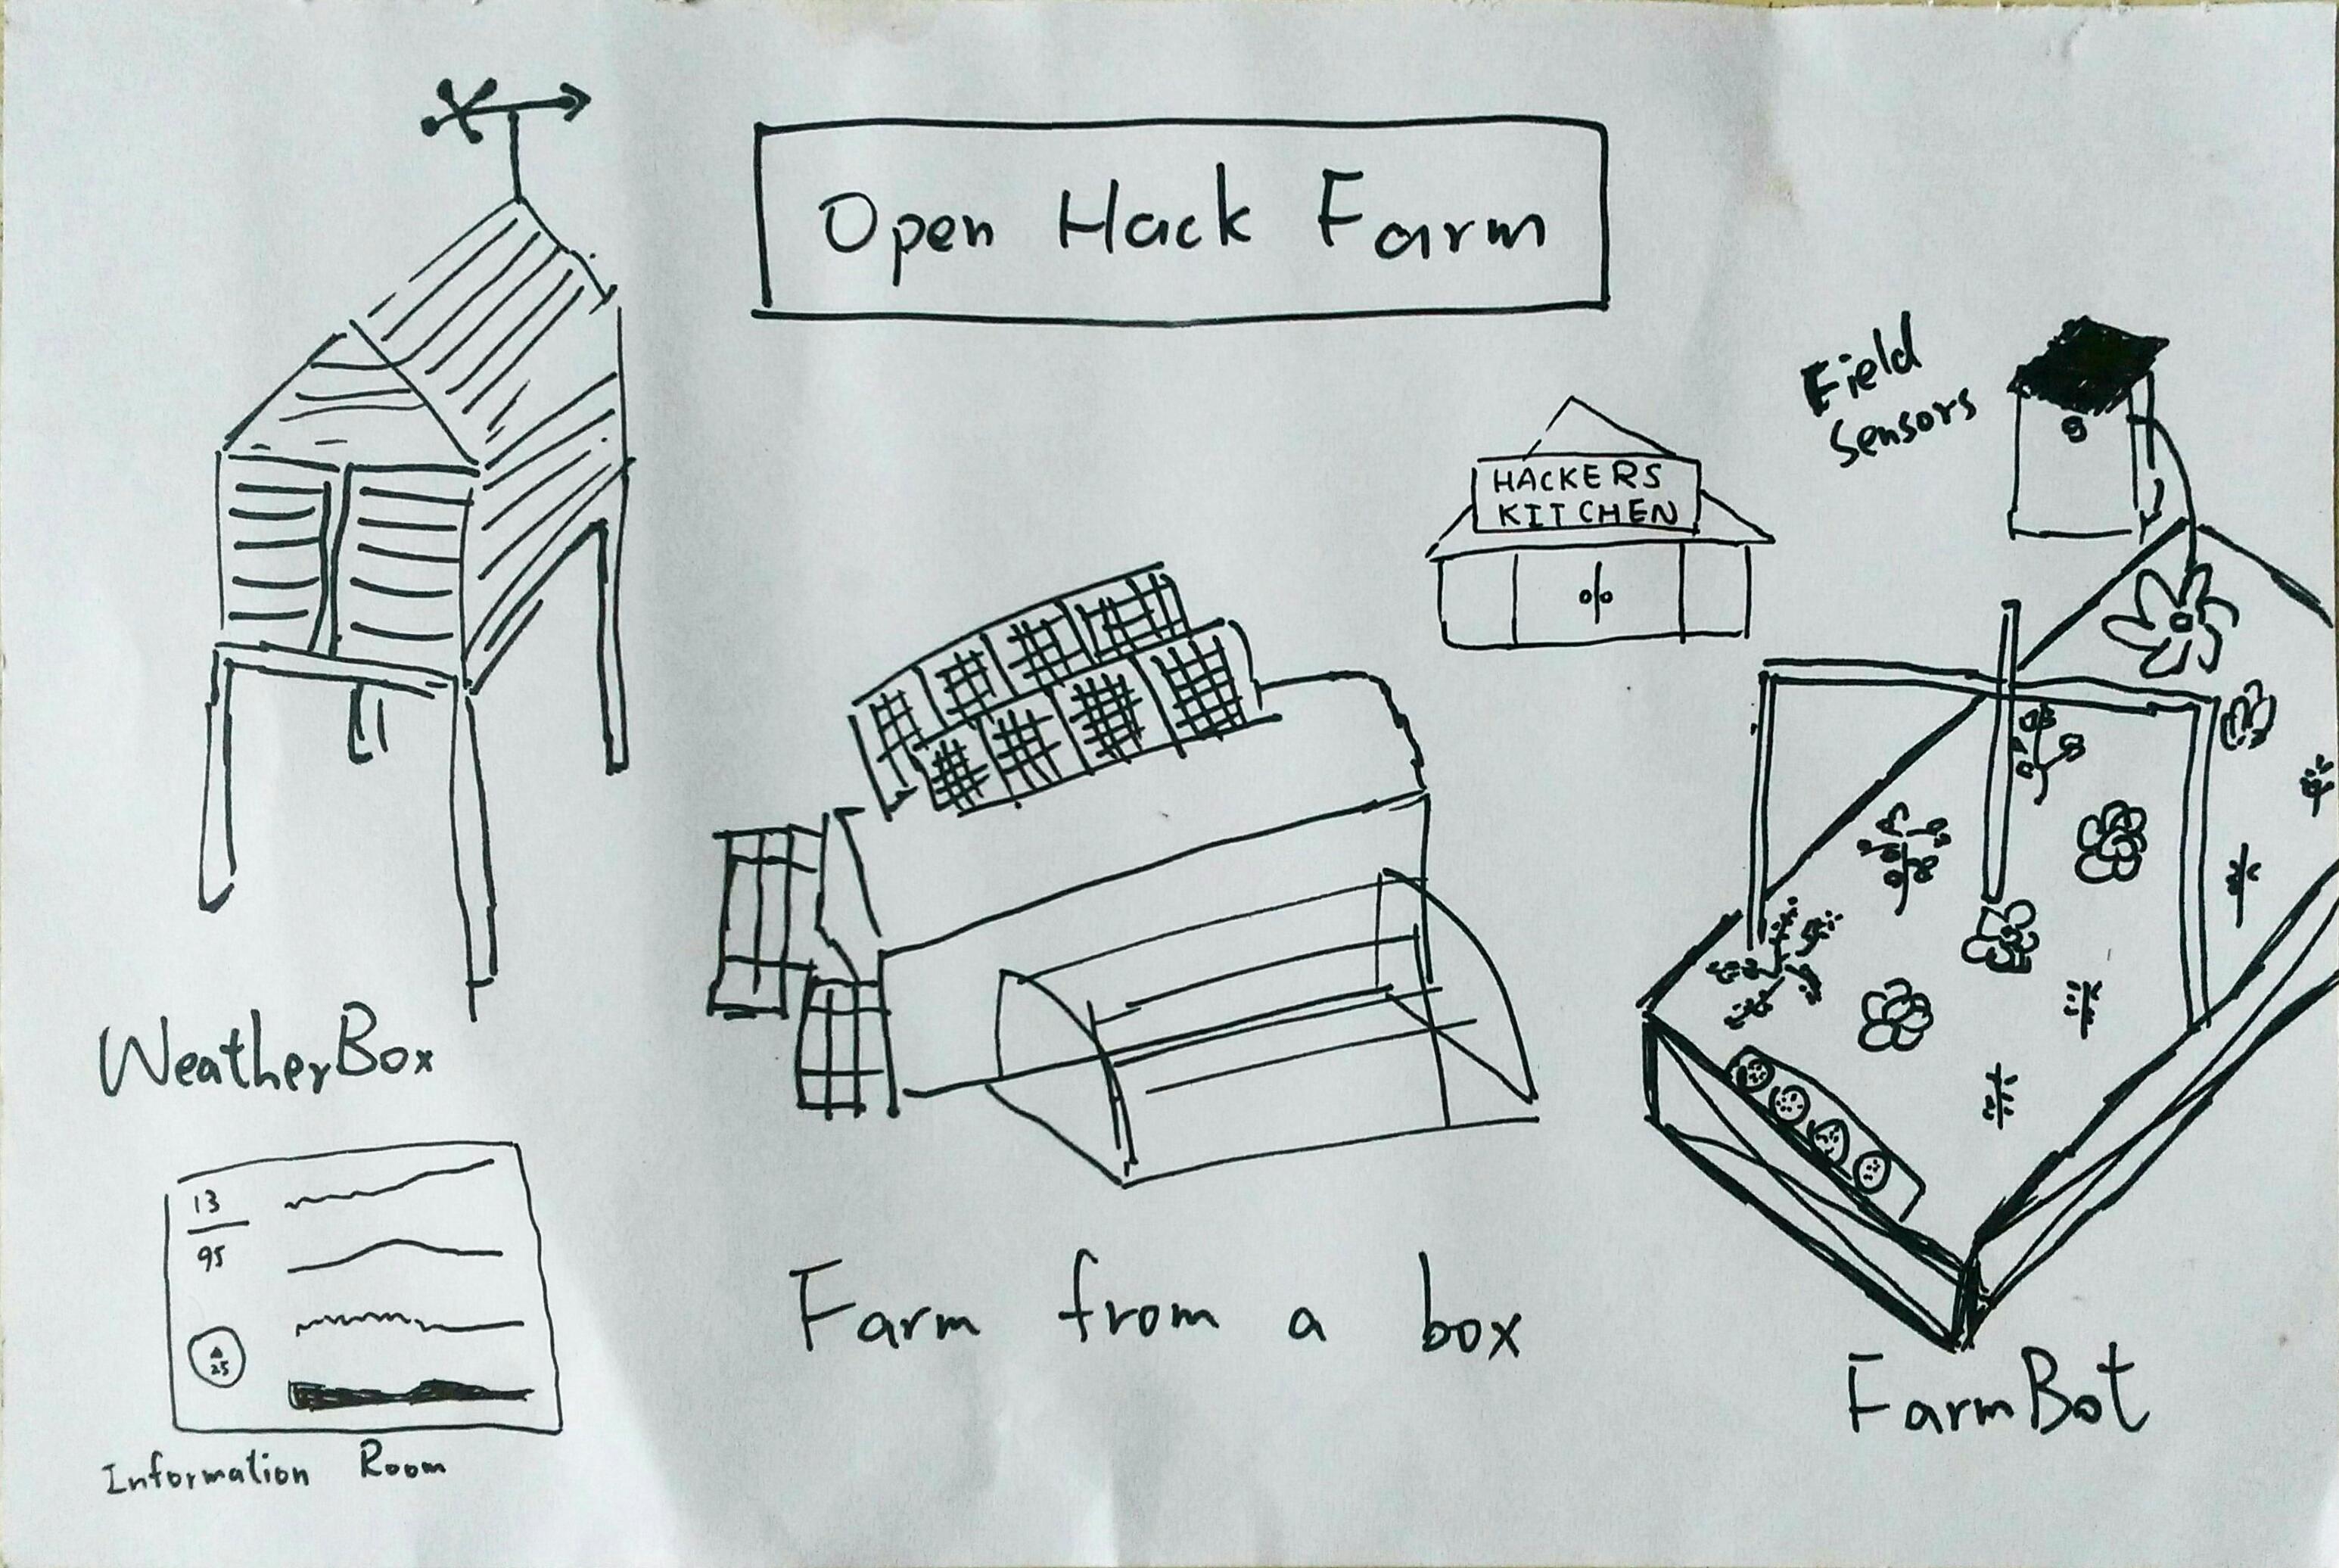 Open Hack Farm
Field
Sensors
HACKERS
KITCHEN
WeatherBox
13
95
25
Information Room
Farm from a box
FarmBot